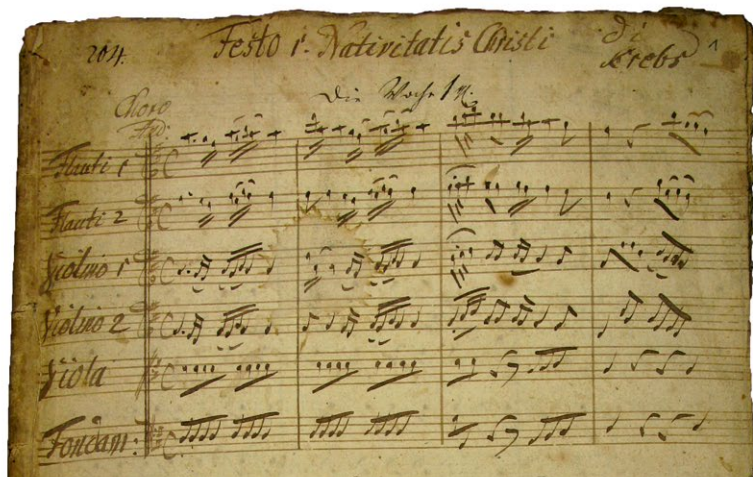 204. Festo 1. Nativitatis Christi di
Krebs
Die
Choro
Flauti 1
Flauti 2
Violino 1
Violino 2
Viola
Fondam: